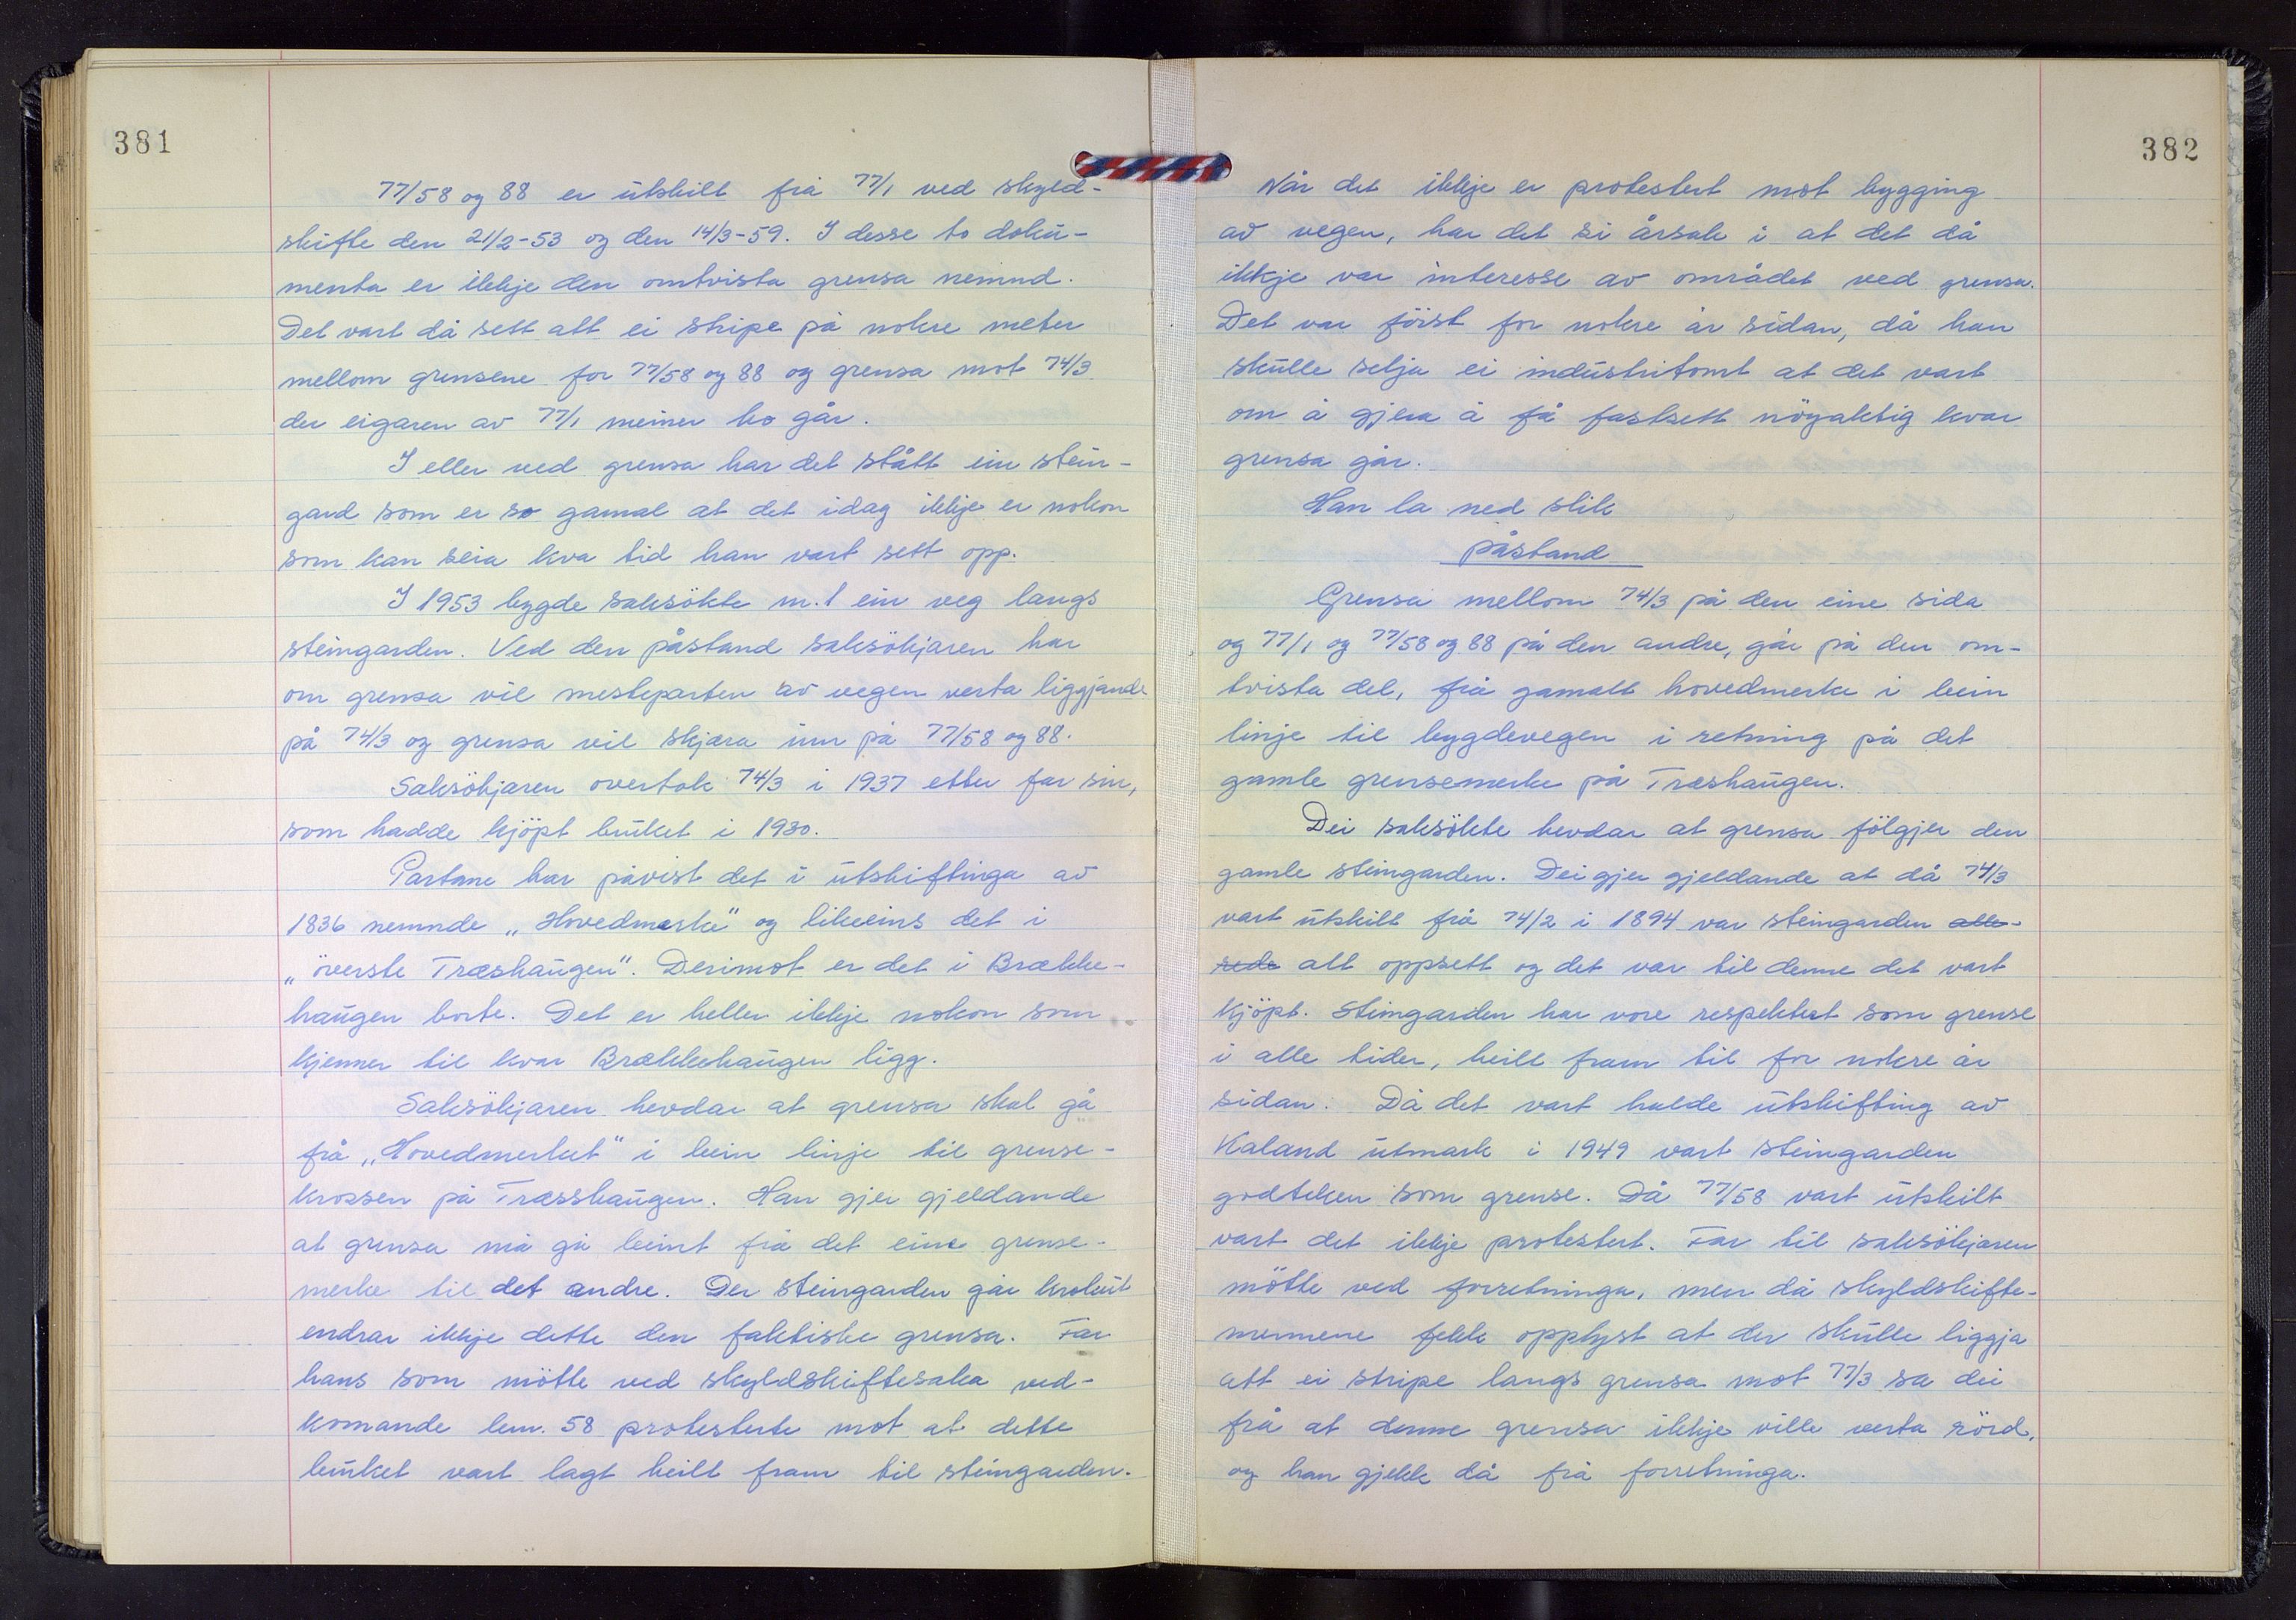 381
77/58 og 88 er utskilt frå 77/1 ved skyld-
skifte den 21/2-53 og den 14/3-59. I desse to doku-
menta er ikkje den omtvista grensa nemnd.
Det vart då sett att ei stripe på nokre meter
mellom grensene for 77/58 og 88 og grensa mot 74/3
der eigaren av 77/1 meiner ho går.
I eller ved grensa har det stått ein stein-
gard som er so gamal at det idag ikkje er nokon
som kan seia kva tid han vart sett opp.
I 1953 bygde saksökte nr. 1 ein veg langs
steingarden. Ved den påstand saksökjaren har
om grensa vil mesteparten av vegen verta liggjande
på 74/3 og grensa vil skjæra inn på 77/58 og 88.
Saksökjaren overtok 74/3 i 1937 etter far sin,
som hadde kjöpt bruket i 1930.
Partane har påvist det i utskiftinga av
1836 nemnde „Hovedmerke" og likeeins det i
„överste Træshaugen". Derimot er det i Brække-
haugen borte. Det er heller ikkje nokon som
kjenner til kvar Brækkehaugen ligg.
Saksökjaren hevdar at grensa skal gå
frå „Hovedmerket" i bein linje til grense-
krossen på Træsshaugen. Han gjer gjeldande
at grensa må gå beint frå det eine grense-
merke til det andre. Der steingarden går krokut
endrar ikkje dette den faktiske grensa. Far
hans som mötte ved skyldskiftesaka ved-
komande bnr. 58 protesterte mot at dette
bruket vart lagt heilt fram til steingarden.
382
Når det ikkje er protestert mot bygging
av vegen, har det si årsak i at det då
ikkje var interesse av området ved grensa.
Det var först for nokre år sidan, då han
skulle selja ei industritomt at det vart
om å gjera å få fastsett nöyaktig kvar
grensa går.
Han la ned slik
påstand
Grensa mellom 74/3 på den eine sida
og 77/1 og 77/58 og 88 på den andre, går på den om-
tvista del, frå gamalt hovedmerke i bein
linje til bygdevegen i retning på det
gamle grensemerke på Træshaugen.
Dei saksökte hevdar at grensa fölgjer den
gamle steingarden. Dei gjer gjeldande at då 74/3
vart utskilt frå 74/2 i 1894 var steingarden alle-
rede alt oppsett og det var til denne det vart
kjöpt. Steingarden har vore respektert som grense
i alle tider, heilt fram til for nokre år
sidan. Då det vart halde utskifting av
Kaland utmark i 1949 vart steingarden
godteken som grense. Då 77/58 vart utskilt
vart det ikkje protestert. Far til saksökjaren
mötte ved forretninga, men då skyldskifte-
mennene fekk opplyst at der skulle liggja
att ei stripe langs grensa mot 77/3 sa dei
frå at denne grensa ikkje ville verta rörd,
og han gjekk då frå forretninga.